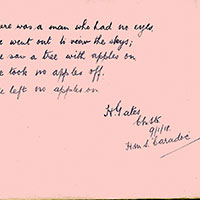 ere was a man who had no eyes
e went out to view the skys;
e saw a tree with apples on
e took no apples off.
e left no apples on
H Yates
9/1/18
H.M.S. Caradoc